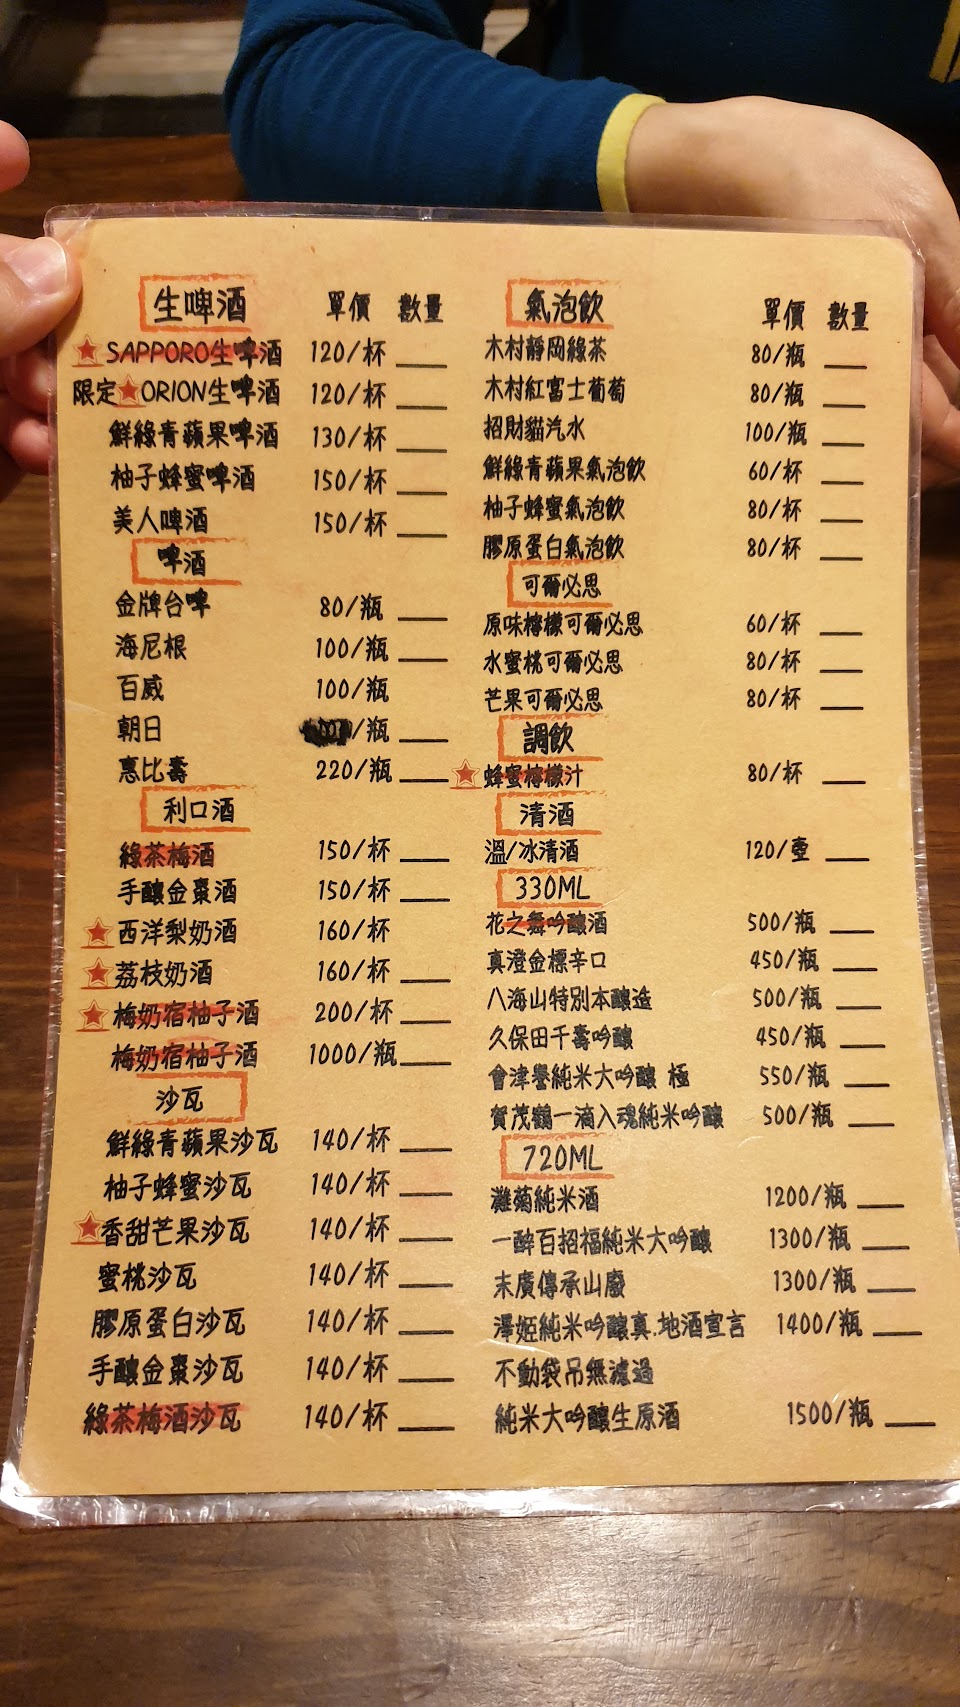 生啤酒 單價 數量
SAPPORO生啤酒 120/杯
限定 ORION生啤酒 120/杯
鮮綠青蘋果啤酒 130/杯
柚子蜂蜜啤酒 150/杯
美人啤酒 150/杯
啤酒
金牌台啤 80/瓶
海尼根 100/瓶
百威 100/瓶
朝日 /瓶
惠比壽 220/瓶
利口酒
綠茶梅酒 150/杯
手釀金棗酒 150/杯
西洋梨奶酒 160/杯
荔枝奶酒 160/杯
梅奶宿柚子酒 200/杯
梅奶宿柚子酒 1000/瓶
沙瓦
鮮綠青蘋果沙瓦 140/杯
柚子蜂蜜沙瓦 140/杯
香甜芒果沙瓦 140/杯
蜜桃沙瓦 140/杯
膠原蛋白沙瓦 140/杯
手釀金棗沙瓦 140/杯
綠茶梅酒沙瓦 140/杯
氣泡飲 單價 數量
木村靜岡綠茶 80/瓶
木村紅富士葡萄 80/瓶
招財貓汽水 100/瓶
鮮綠青蘋果氣泡飲 60/杯
柚子蜂蜜氣泡飲 80/杯
膠原蛋白氣泡飲 80/杯
可爾必思
原味檸檬可爾必思 60/杯
水蜜桃可爾必思 80/杯
芒果可爾必思 80/杯
調飲
蜂蜜檸檬汁 80/杯
清酒
溫/冰清酒 120/壺
330ML
花之舞吟釀酒 500/瓶
真澄金標辛口 450/瓶
八海山特別本釀造 500/瓶
久保田千壽吟釀 450/瓶
會津譽純米大吟釀 極 550/瓶
賀茂鶴一滴入魂純米吟釀 500/瓶
720ML
灘菊純米酒 1200/瓶
一醉百招福純米大吟釀 1300/瓶
末廣傳承山廢 1300/瓶
澤姬純米吟釀真.地酒宣言 1400/瓶
不動袋吊無濾過
純米大吟釀生原酒 1500/瓶